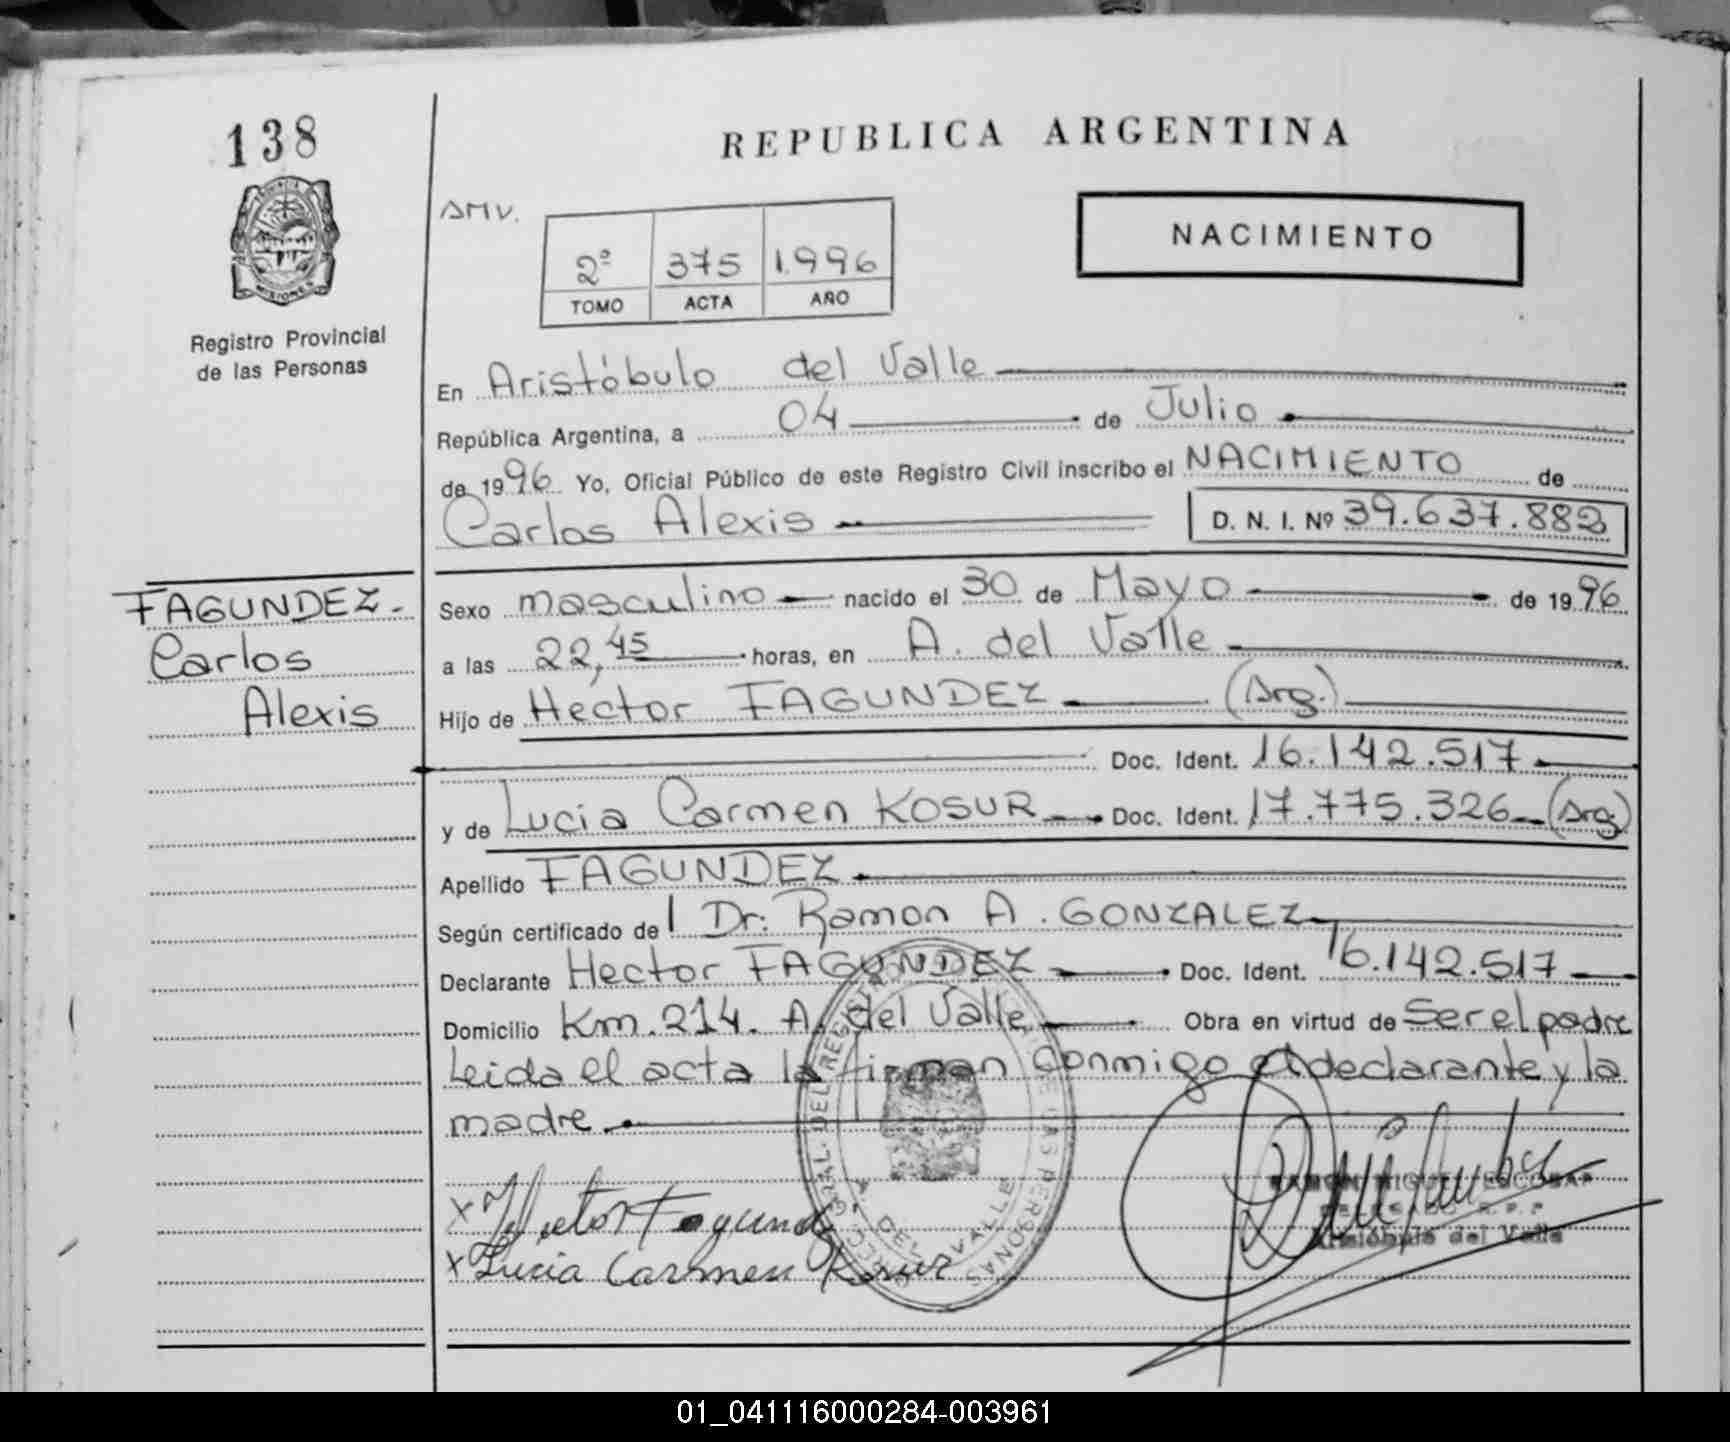 138
REPUBLICA ARGENTINA
AMV.
NACIMIENTO
2º 375 1.996
TOMO ACTA AÑO
PROVINCIA
MISIONES
Registro Provincial
de las Personas
En Aristóbulo del Valle
República Argentina, a 04 de Julio
de 1996 Yo, Oficial Público de este Registro Civil inscribo el NACIMIENTO de
Carlos Alexis D. N. I. Nº 39.637.882
FAGUNDEZ.-
Carlos
Alexis
Sexo masculino nacido el 30 de Mayo de 1996
a las 22,45 horas, en A. del Valle
Hijo de Héctor FAGUNDEZ (Arg.)
Doc. Ident. 16.142.517
y de Lucia Carmen KOSUR Doc. Ident. 17.775.326 (Arg)
Apellido FAGUNDEZ
Según certificado de Dr. Ramon A. GONZALEZ
Declarante Hector FAGUNDEZ Doc. Ident. 16.142.517
Domicilio Km. 214. A. del Valle Obra en virtud de Ser el padre
Leida el acta la firman conmigo el declarante y la
madre.
x Hector Fagundez
x Lucia Carmen Kosur
DEL VALLE
DE LAS PERSONAS
RAMON MIGUEL ESCOBAR
DELEGADO R.P.P.
Aristóbulo del Valle
01_041116000284-003961